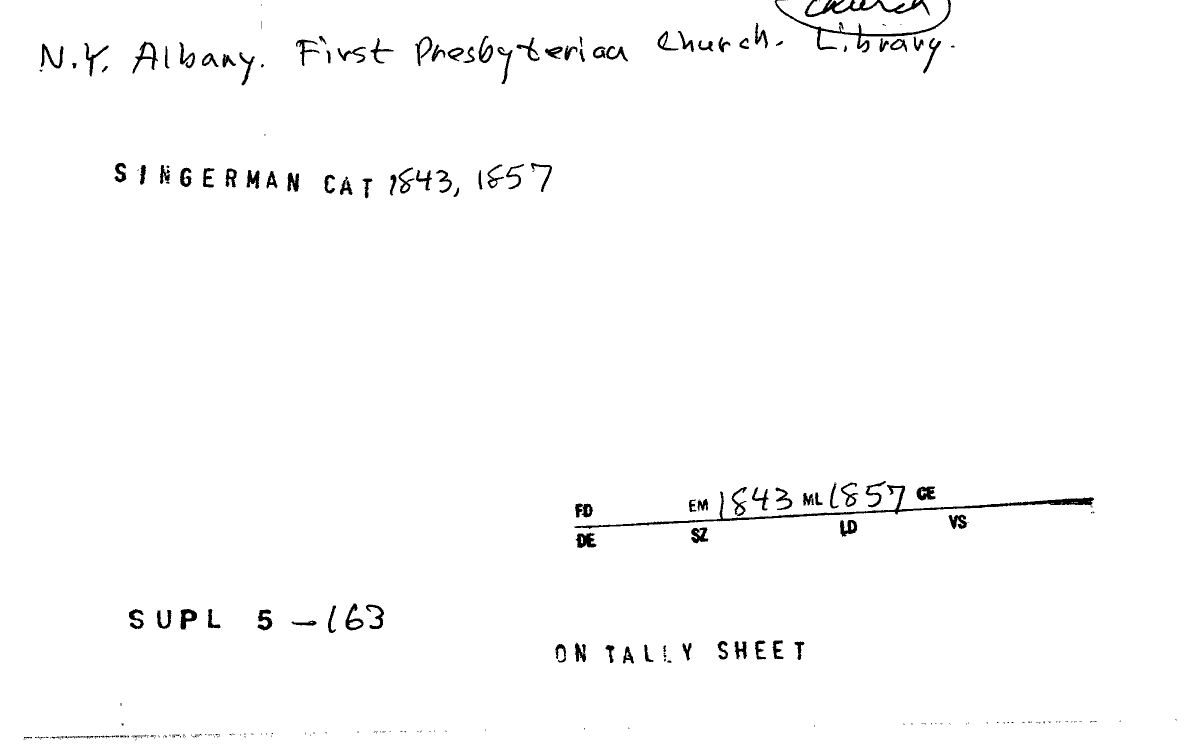 Church
N.Y. Albany. First Presbyterian Church. Library.
SINGERMAN CAT 1843, 1857
FD EM 1843 ML 1857 CE
DE SZ LD VS
SUPL 5 - 163
ON TALLY SHEET